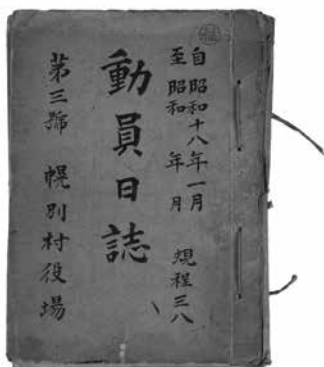 自昭和十八年一月
至昭和 年 月
規程三八
動員日誌
第三號 幌別村役場